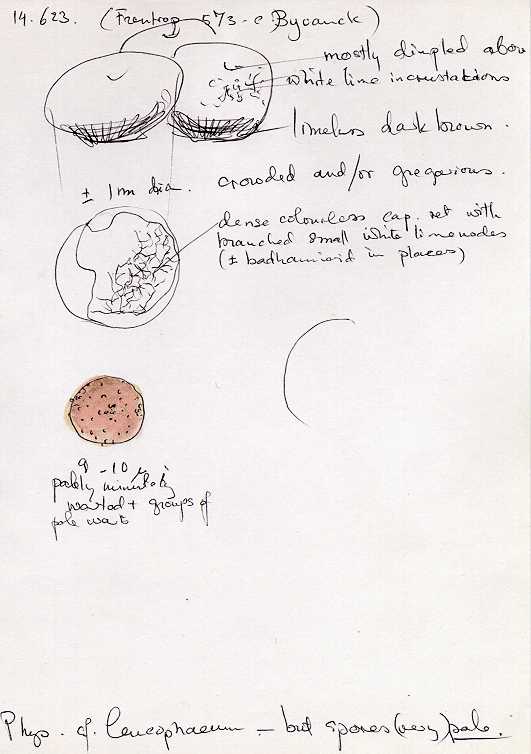 14.623. (Frentrop 573 - c Bycanck)
mostly dimpled above
white lime incrustations
limeless dark brown.
± 1 mm dia. crowded and/or gregarious.
dense colourless cap. net with
branched small white limenodes
(± badhamioid in places)
9 - 10 µ
palely minutely
warted + groups of
pale warts
Phys. cf. leucophaeum - but spores (very) pale.